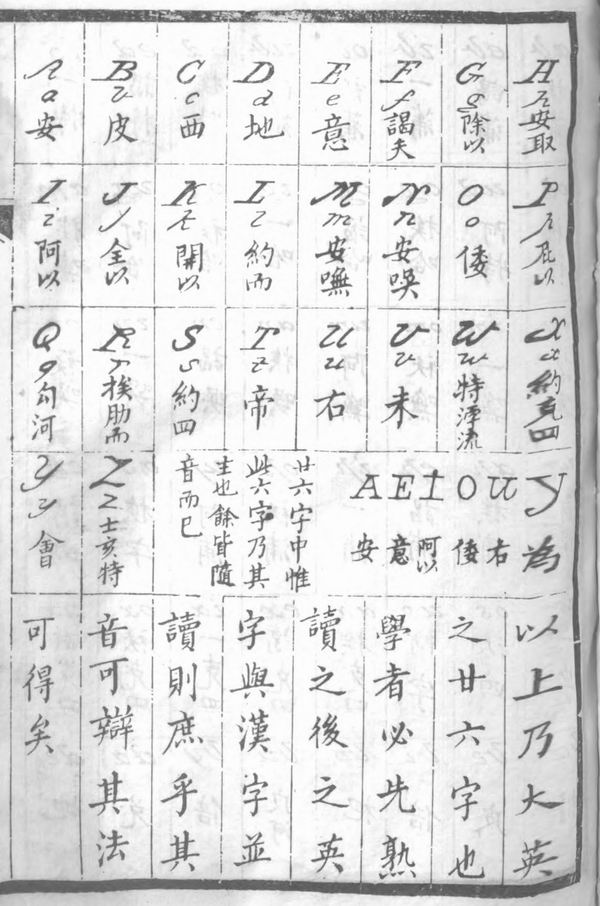 A a 安
B b 皮
C c 西
D d 地
E e 意
F f 謁夫
G g 除以
H h 安取
I i 阿以
J j 全以
K k 開以
L l 約而
M m 安嘸
N n 安
O o 倭
P p 以
Q q 勾河
R r 挨肋而
S s 約四
T t 帝
U u 右
V v 未
W w 特潭流
X x 約克四
Y y 會
Z z 士亥特
A E I O U y 為
安 意 阿以 倭 右
廿六字中惟
此六字乃其
生也餘皆隨
音而已
以上乃大英
之廿六字也
學者必先熟
讀之後之英
字與漢字並
讀則庶乎其
音可辯其法
可得矣